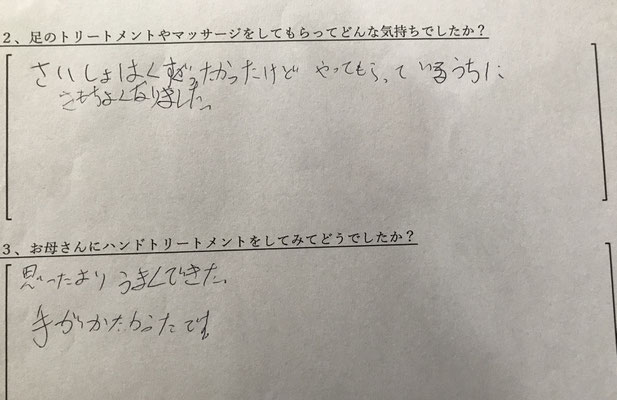 2、足のトリートメントやマッサージをしてもらってどんな気持ちでしたか？
さいしょはくすぐったかったけど やってもらって いるうちに
きもちよくなりました。
3、お母さんにハンドトリートメントをしてみてどうでしたか？
思ったよりうまくできた。
手がかたかったです